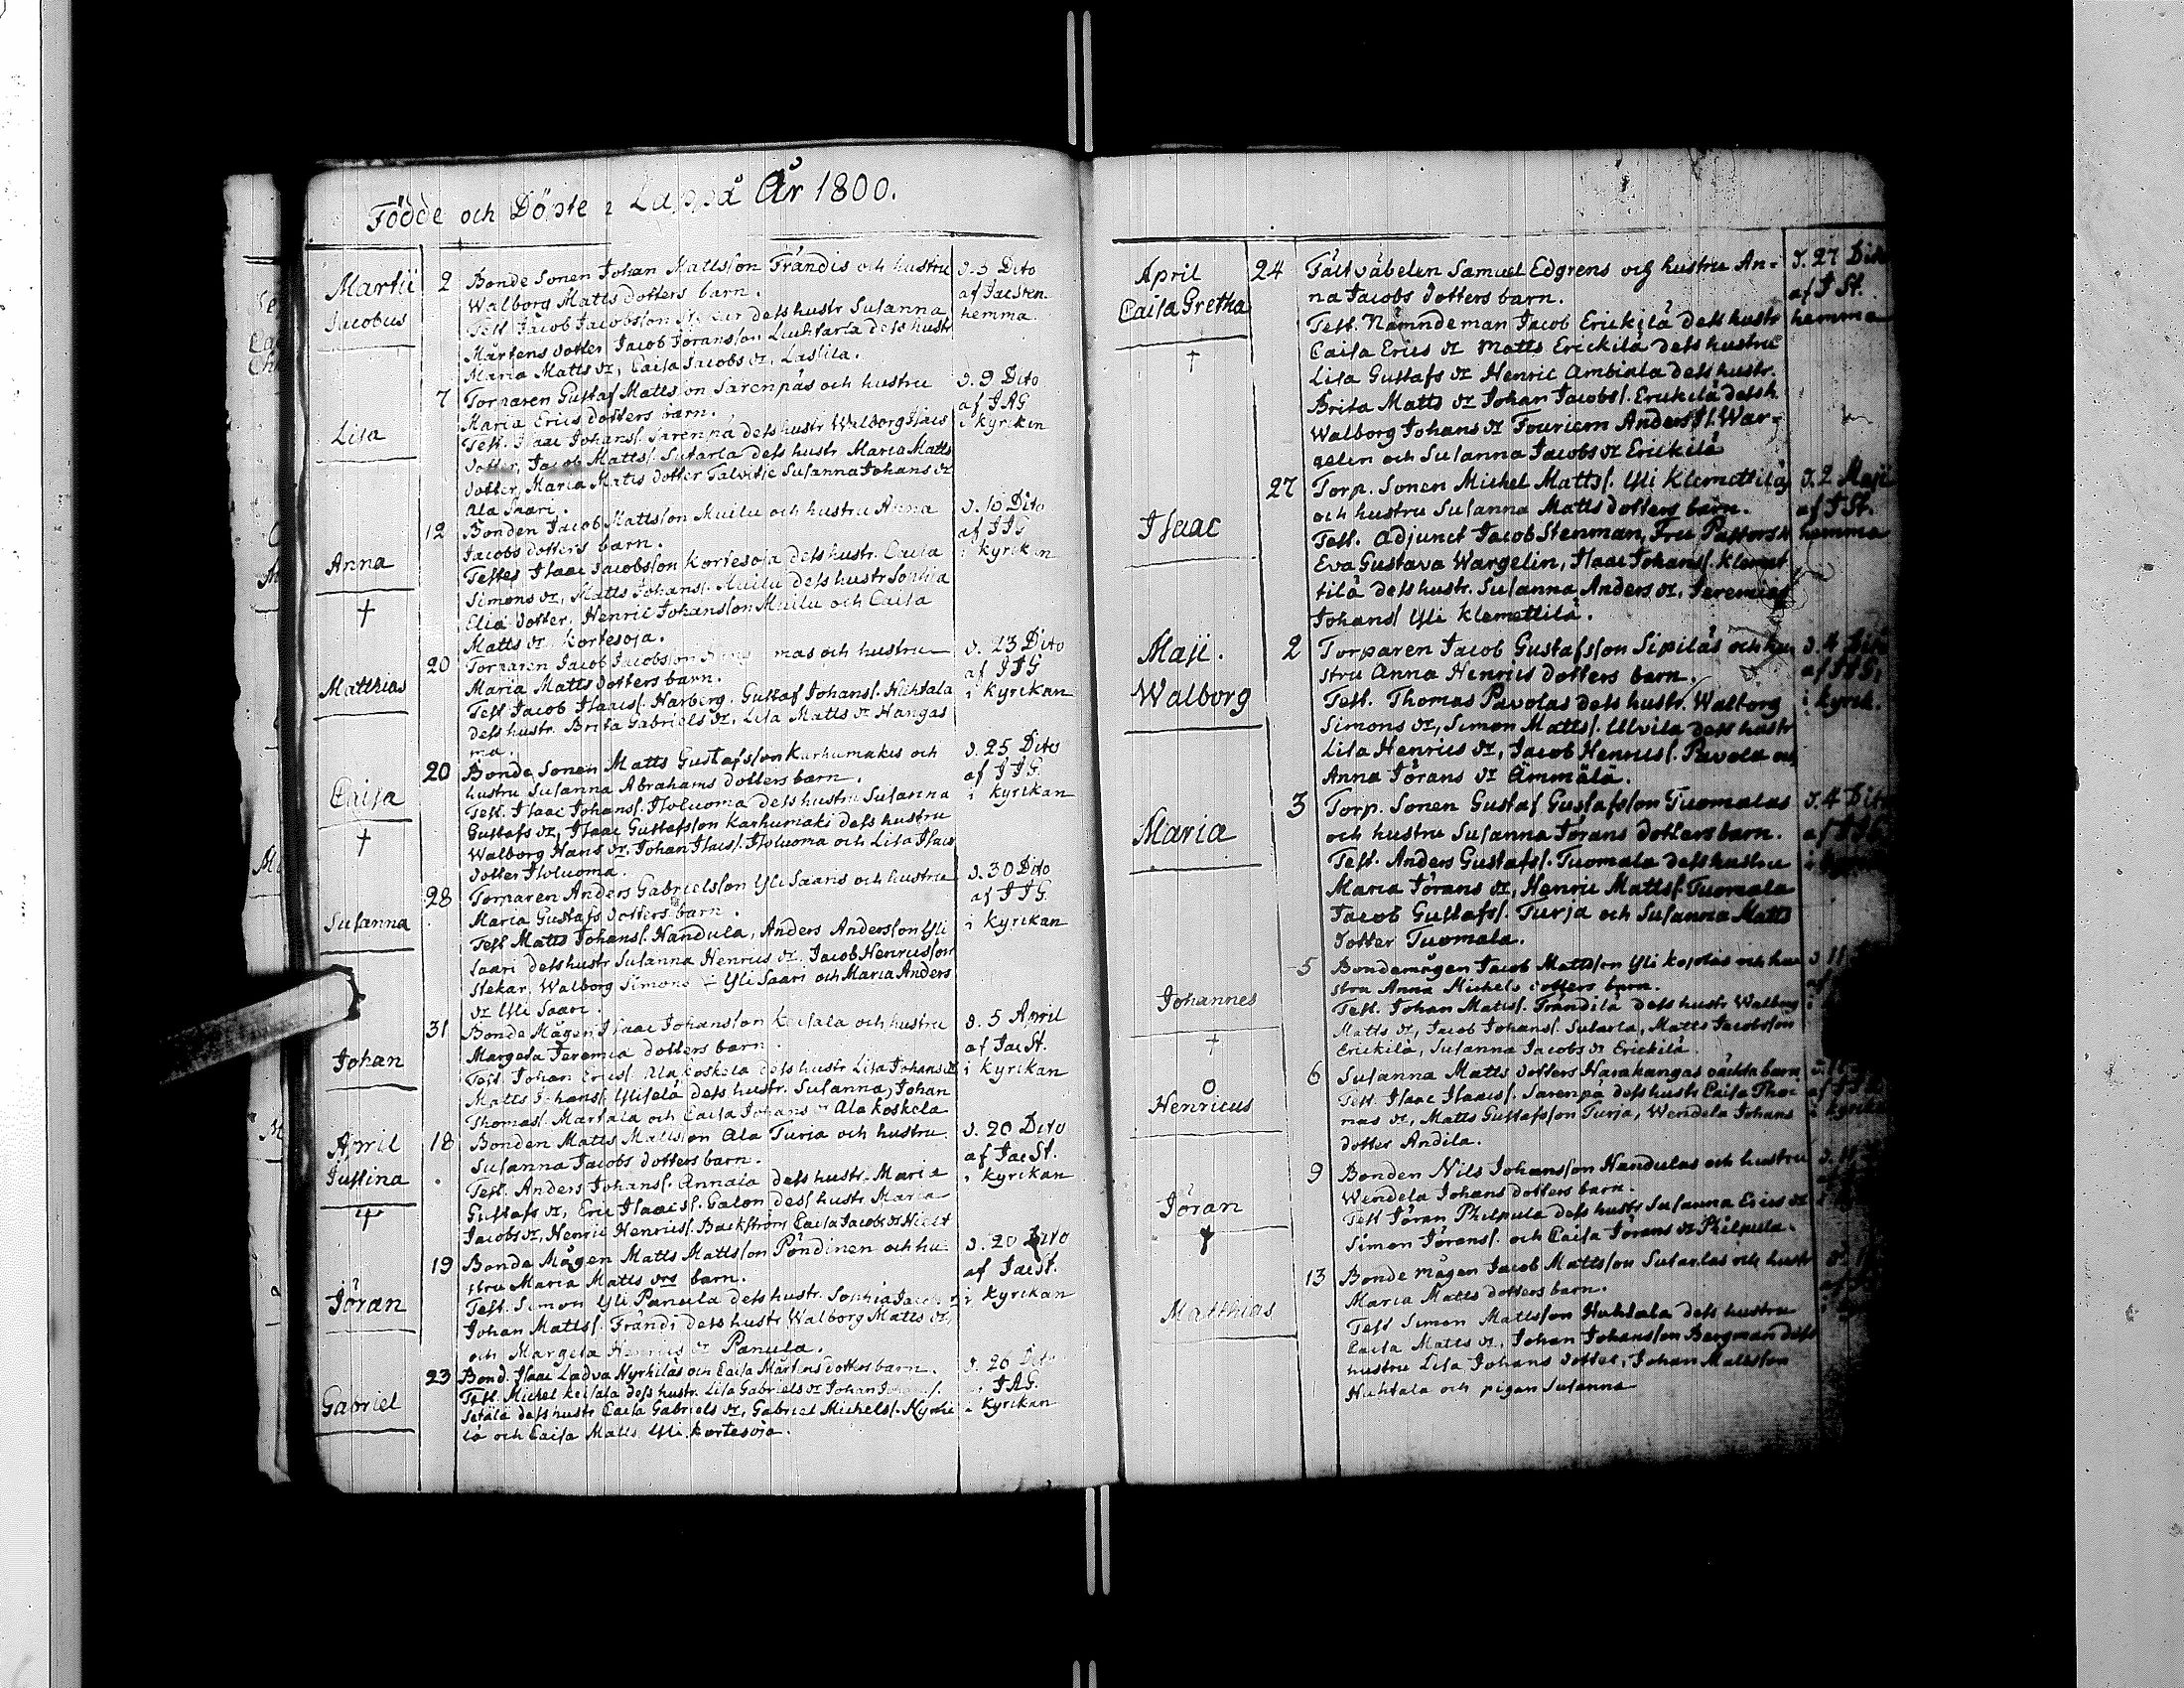 Födde och Döpte i Lappå År 1800.
Martii 2 Bonde Sonen Johan Mattsson Frändis och hustru d. 3 Dito
Jacobus Walborg Matts dotters barn. af Jac Sten.
Test. Jacob Jacobsson Stekar dess hustr Susanna hemma
Mårtens dotter Jacob Jöransson Luhtarla dess hustr
Maria Matts dr, Caisa Jacobs dr. Lassila.
7 Torparen Gustaf Mattsson Sarenpäs och hustru d. 9 Dito
Maria Erics dotters barn. af JAG
Lisa Test. Isaac Johanss. Sarenpä dess hustr Walborg Isacs i kyrkan
dotter, Jacob Matts. Sutarla dess hustr Maria Matts
dotter, Maria Matts dotter Talvitje Susanna Johans dr
Ala Saari.
12 Bonden Jacob Mattsson Muilu och hustru Anna d. 16 Dito
Jacobs dotters barn. af JJG
Anna Testes Isaac Jacobsson Kortesoja dess hustr. Caisa i kyrkan
† Simons dr, Matts Johanss. Muilu dess hustr Sophia
Eliæ dotter, Henric Johansson Muilu och Caisa
Matts dr Kortesoja.
20 Torparen Jacob Jacobsson mas och hustru d. 23 Dito
Matthias Maria Matts dotters barn. af JJG
Test Jacob Isaacs. Harberg. Gustaf Johans. Huhtala i kyrkan
dess hustr. Brita Gabriels dr. Lisa Matts dr Hangas
ma.
20 Bonde Sonen Matts Gustafsson Karhumakis och d. 25 Dito
Caisa hustru Susanna Abrahams dotters barn. af JJG.
† Test. Isaac Johans. Isoluoma dess hustru Susanna i kyrkan
Gustafs dr, Isaac Gustafsson Karhumaki dess hustru
Walborg Hans dr. Johan Isacs. Isoluoma och Lisa Isacs
dotter Isoluoma.
28 Torparen Anders Gabrielsson Yli Saaris och hustru d. 30 Dito
Susanna Maria Gustafs dotters barn. af JJG.
Test Matts Johans. Handula, Anders Andersson Yli i kyrkan
Saari dess hustr Susanna Henrics dr. Jacob Henricsson
Stekar, Walborg Simons Yli Saari och Maria Anders
dr Yli Saari.
31 Bonde Mågen Isaac Johansson Keisala och hustru d. 5 April
Johan Margeta Jeremiæ dotters barn. af Jac St.
Test. Johan Erics. Ala Koskela dess hustr Lisa Johans dr i kyrkan
Matts Johans. Ylisela dess hustr. Susanna, Johan
Thomas. Marsala och Caisa Johans dr Ala Koskela
April 18 Bonden Matts Mattsson Ala Turja och hustru d. 20 Dito
Justina Susanna Jacobs dotters barn. af Jac St.
† Test. Anders Johans. Annala dess hustr. Maria i kyrkan
Gustafs dr, Eric Isaacs. Galon dess hustr Maria
Jacobs dr, Henric Henrics. Backström Caisa Jacobs dr
19 Bonde Mågen Matts Mattsson Pöndinen och hu- d. 20 Dito
stru Maria Matts drs barn. af Jac St.
Jöran Test. Simon Yli Panula dess hustr. Sophia Jacobs i kyrkan
Johan Matts. Frändi dess hustr Walborg Matts dr,
och Margeta Henrics dr Panula.
23 Bond. Isaac Ladva Nyrhiläs och Caisa Mårtens dotters barn. d. 26 Dito
Gabriel Test. Michel Keisala dess hustr. Lisa Gabriels dr Johan JAG.
Setälä dess hustr Caisa Gabriels dr, Gabriel Michels. Nyrhi i Kyrkan
lä och Caisa Matts Yli Kortesoja.
April 24 Fältväbelen Samuel Edgrens och hustru An- d. 27 Dito
Caisa Gretha na Jacobs dotters barn. af J St.
† Test. Nämndeman Jacob Erickilä dess hustr hemma
Caisa Erics dr Matts Erickilä dess hustru
Lisa Gustafs dr Henric Ambiala dess hustr.
Brita Matts dr Johan Jacobs. Erickilä dess h.
Walborg Johans dr Fouriern Anders J. War-
gelin och Susanna Jacobs dr Erickilä
27 Torp. Sonen Michel Matts. Yli Klemettiläs d. 2 Maji
och hustru Susanna Matts dotters barn. af J St.
Isaac Test. Adjunct Jacob Stenman, Fru Pastorsk hemma
Eva Gustava Wargelin, Isaac Johans. Klemet
tilä dess hustr. Susanna Anders dr. Jeremias
Johans Yli Klemettilä.
Maji. 2 Torparen Jacob Gustafsson Sipiläs och hu d. 4 Dito
Walborg stru Anna Henrics dotters barn. af JJG,
Test. Thomas Pavolas dess hustr. Walborg i kyrk.
Simons dr, Simon Matts. Ulvila dess hustr
Lisa Henrics dr, Jacob Henrics. Pavola och
Anna Jörans dr Ämmälä.
3 Torp. Sonen Gustaf Gustafsson Tuomalas d. 4 Dito
Maria och hustru Susanna Jörans dotters barn. af JJG
Test. Anders Gustafs. Tuomala dess hustru
Maria Jörans dr, Henric Matts. Tuomala
Jacob Gustafs. Turja och Susanna Matts
dotter Tuomala.
5 Bondemågen Jacob Mattsson Yli Kojolas och hu d. 11
Johannes stru Anna Michels dotters barn.
† Test. Johan Matts. Frändilä dess hustr Walborg
Matts dr, Jacob Johans. Sutarla, Matts Jacobsson
Erickilä, Susanna Jacobs dr Erickilä.
6 Susanna Matts dotters Harakangas oäckta barn
O Henricus Test. Isaac Isaacs. Sarenpä dess hustr Caisa Tho-
mas dr, Matts Gustafsson Turja, Wendela Johans i kyrka
dotter Andila.
9 Bonden Nils Johansson Handulas och hustru
Wendela Johans dotters barn.
Jöran Test Jöran Philpula dess hustr Susanna Erics dr
† Simon Jörans. och Caisa Jörans dr Philpula.
13 Bonde mågen Jacob Mattsson Sutarlas och hustr
Maria Matts dotters barn.
Matthias Test Simon Mattsson Huhtala dess hustru
Caisa Matts dr, Johan Johansson Bergman dess
hustru Lisa Johans dotter, Johan Mattsson
Huhtala och pigan Susanna